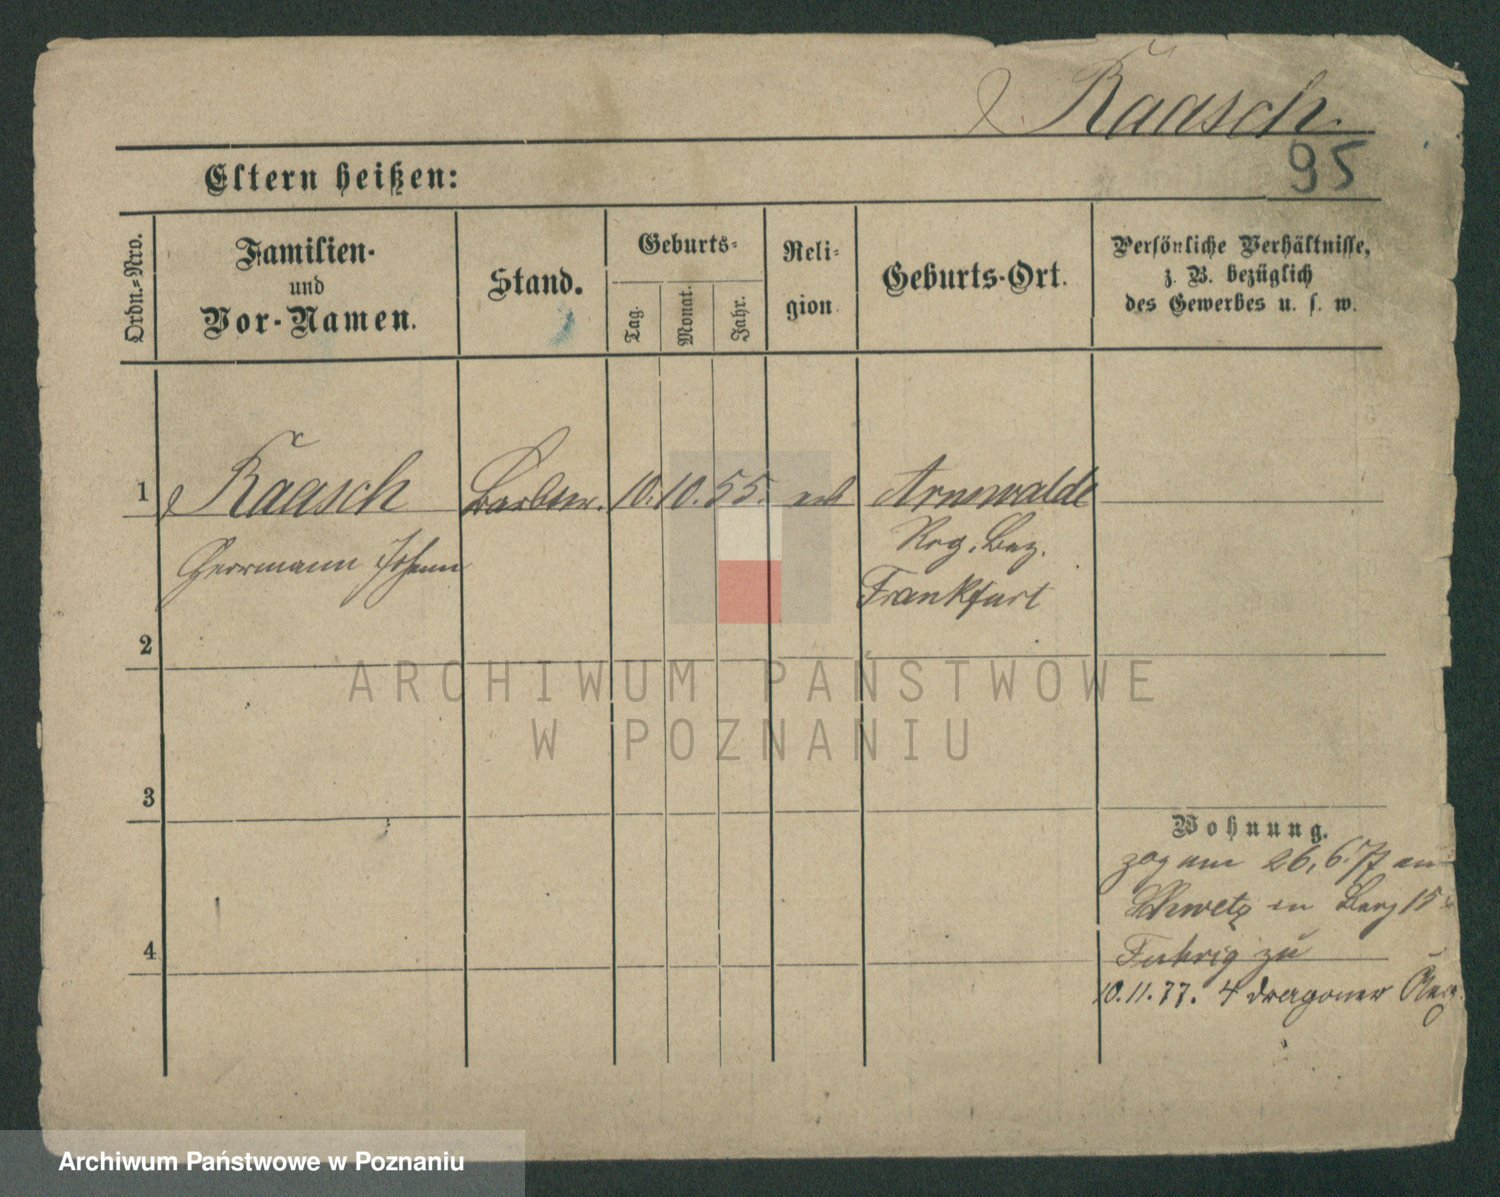 Raasch.
95
Eltern heißen:
Ordn.-Nro.
Familien-
und
Vor-Namen.
Stand.
Geburts-
Tag.
Monat.
Jahr.
Reli-
gion
Geburts-Ort.
Persönliche Verhältnisse,
z. B. bezüglich
des Gewerbes u. s. w.
1
Raasch
Barbier.
10. 10. 55.
Arnswalde
Herrmann Johann
Reg. Bez.
Frankfurt
2
ARCHIWUM PAŃSTWOWE
W POZNANIU
3
Wohnung.
zog am 26.6.77 von
Schwetz in Berg 15
zu
4
10.11.77. 4 Dragoner
Archiwum Państwowe w Poznaniu